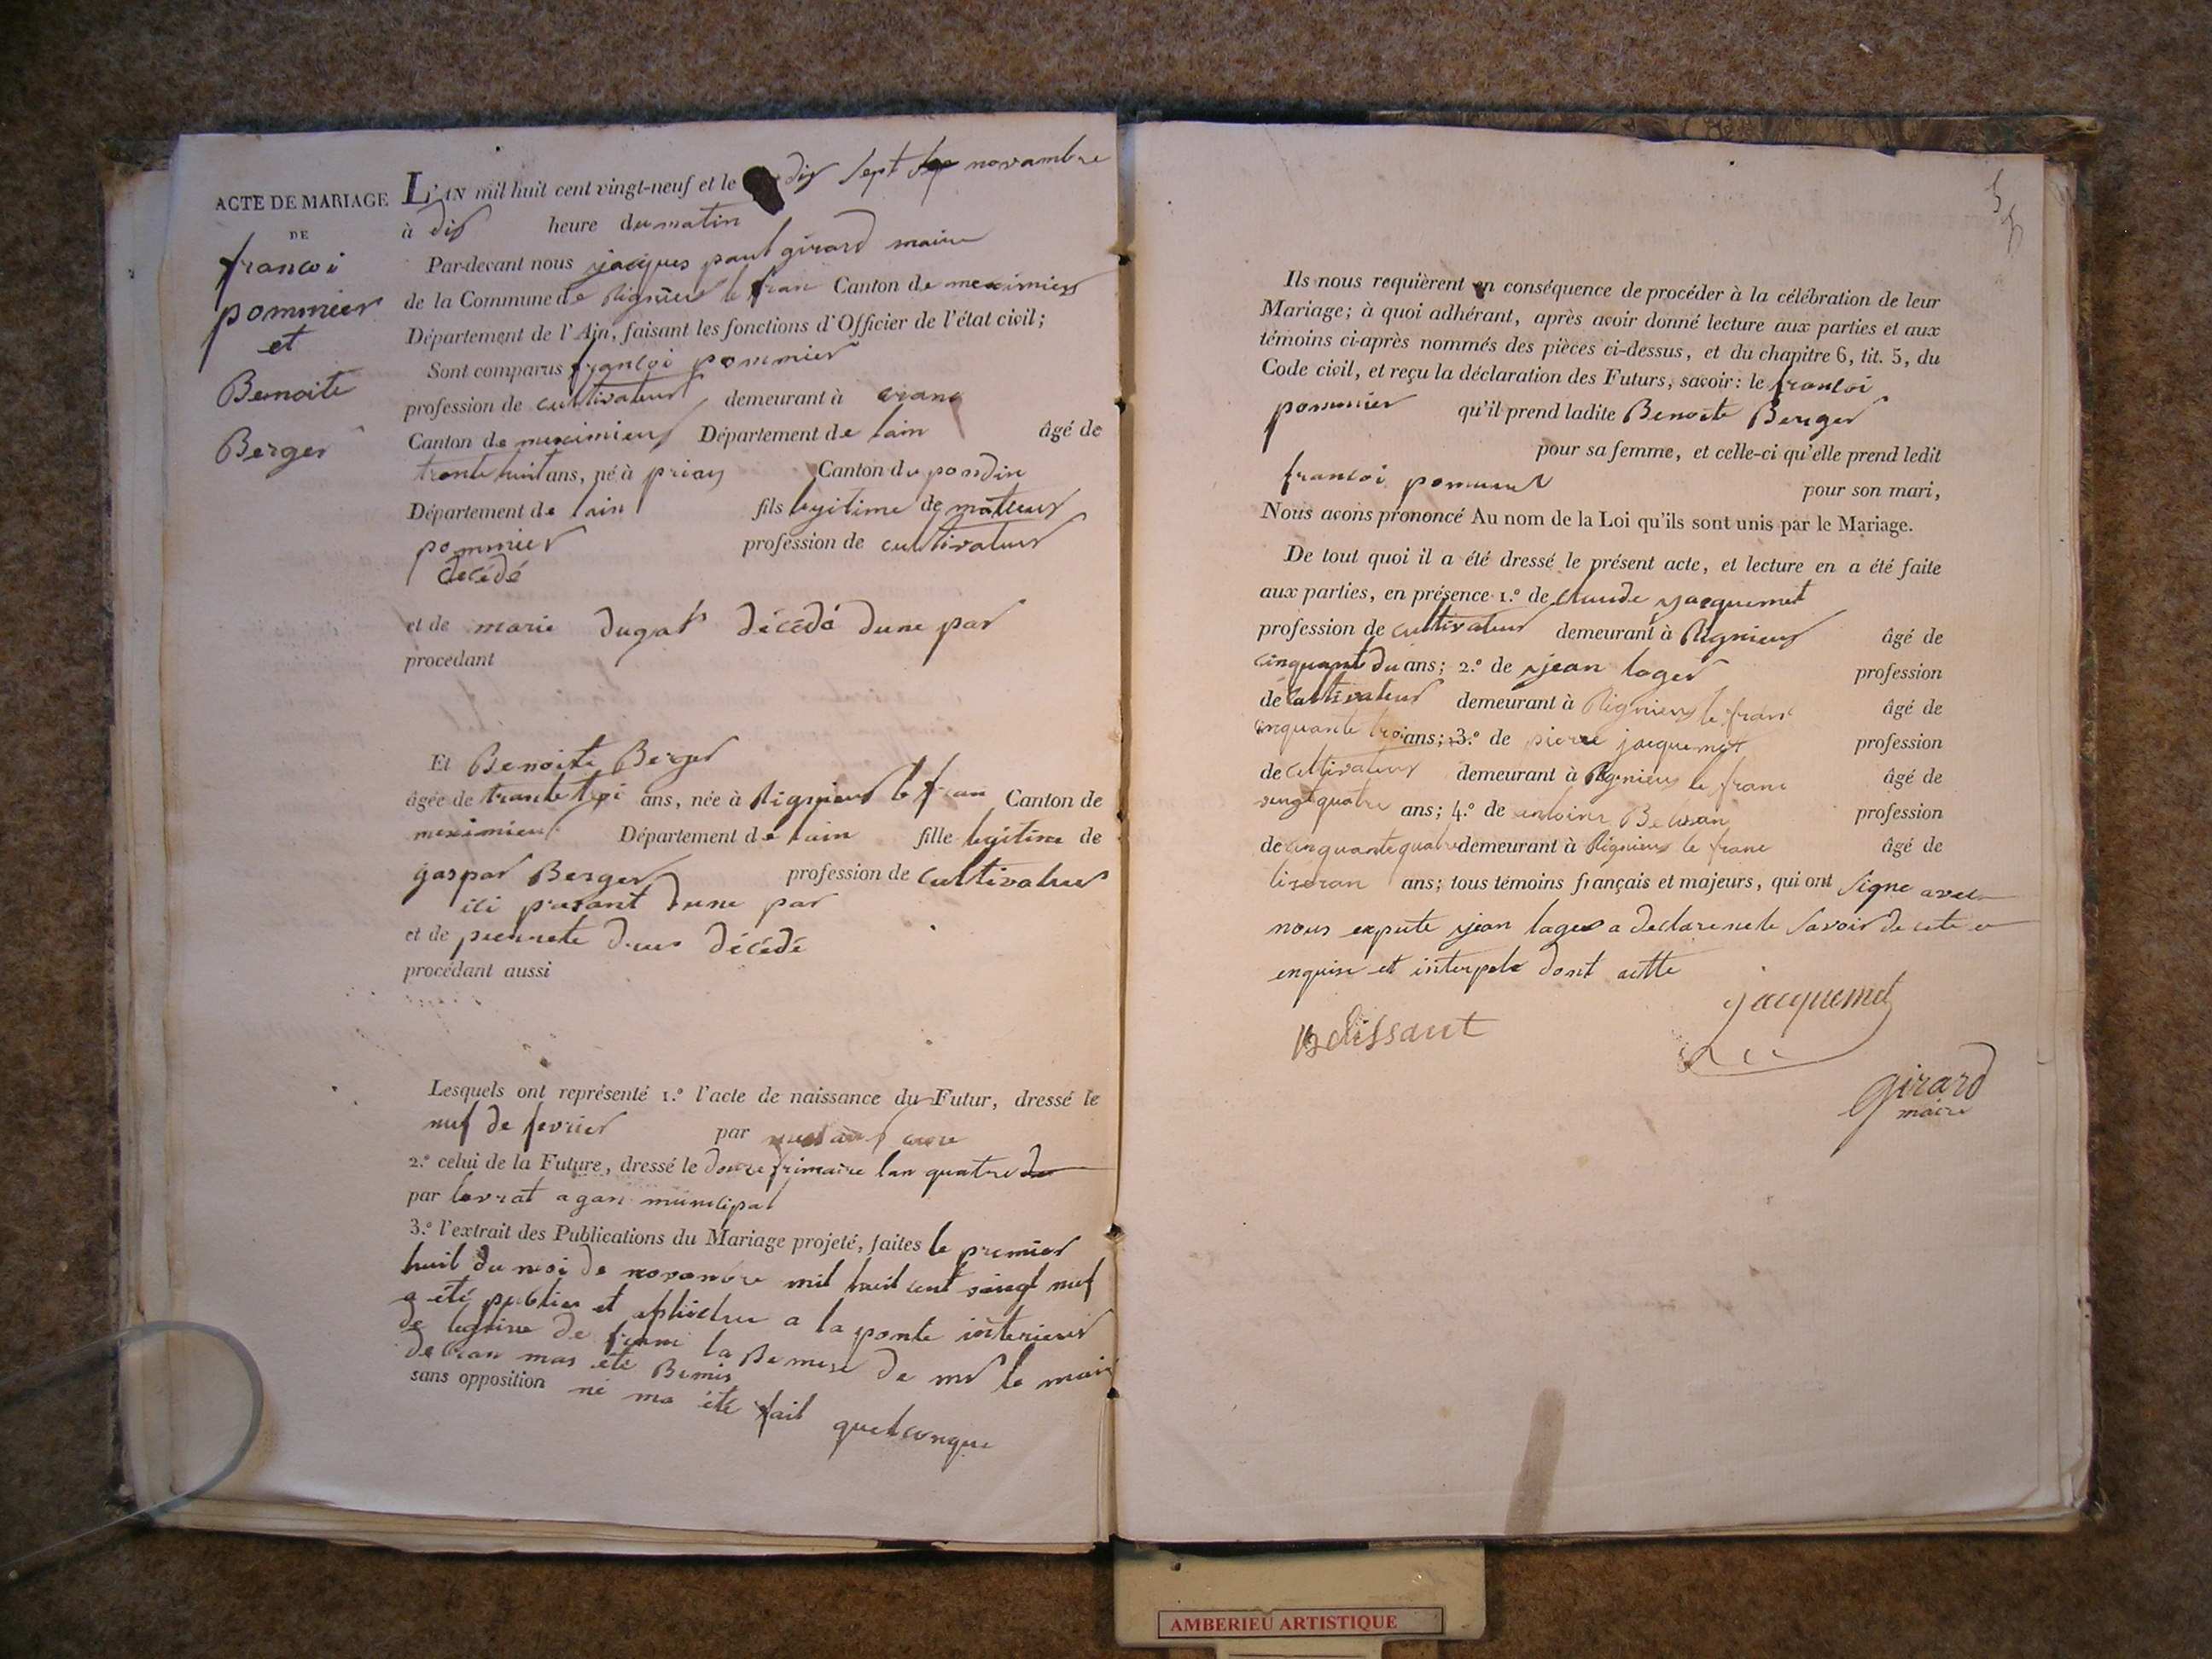 ACTE DE MARIAGE
DE
francoi
pommier
et
Benoite
Berger
L'AN mil huit cent vingt-neuf et le dix sept novambre
à dix heure du matin
Par-devant nous jacques paul girard maire
de la Commune de Rignieux le fran Canton de meximieux
Département de l'Ain, faisant les fonctions d'Officier de l'état civil;
Sont comparus francoi pommier
profession de cultivateur demeurant à crans
Canton de meximieux Département de lain âgé de
trante huit ans, né à priay Canton du pondin
Département de lain fils legitime de mateux
pommier profession de cultivateur
decédé
et de marie dugas décédé dune par
procédant
Et Benoite Berger
âgée de trante troi ans, née à Rignieux le fran Canton de
meximieux Département de lain fille legitime de
gaspar Berger profession de cultivateur
ici prasant dune par
et de décédé
procédant aussi
Lesquels ont représenté 1.º l'acte de naissance du Futur, dressé le
neuf de fevrier par cure
2.º celui de la Future, dressé le frimaire lan quatre
par agan municipal
3.º l'extrait des Publications du Mariage projeté, faites le premier
huit du moi de novambre mil huit cent vingt neuf
a été publier et a la porte interieur
de de la de mr le mair
de mas été
sans opposition ni ma été fait quelconque
Ils nous requièrent en conséquence de procéder à la célébration de leur
Mariage; à quoi adhérant, après avoir donné lecture aux parties et aux
témoins ci-après nommés des pièces ci-dessus, et du chapitre 6, tit. 5, du
Code civil, et reçu la déclaration des Futurs, savoir: le francoi
pommier qu'il prend ladite Benoite Berger
pour sa femme, et celle-ci qu'elle prend ledit
francoi pommier pour son mari,
Nous avons prononcé Au nom de la Loi qu'ils sont unis par le Mariage.
De tout quoi il a été dressé le présent acte, et lecture en a été faite
aux parties, en présence 1.º de claude jacquemet
profession de cultivateur demeurant à Rignieux âgé de
cinquante ans; 2.º de jean lager profession
de cultivateur demeurant à Rignieux le franc âgé de
cinquante troi ans; 3.º de pierre jacquemet profession
de cultivateur demeurant à Rignieux le franc âgé de
vingt quatre ans; 4.º de antoine profession
de cinquante quatre demeurant à Rignieux le franc âgé de
ans; tous témoins français et majeurs, qui ont signe avec
nous jean lager a declare ne le savoir de
enquis et interpele dont actte
jacquemet
Belissant
girard
maire
AMBERIEU ARTISTIQUE